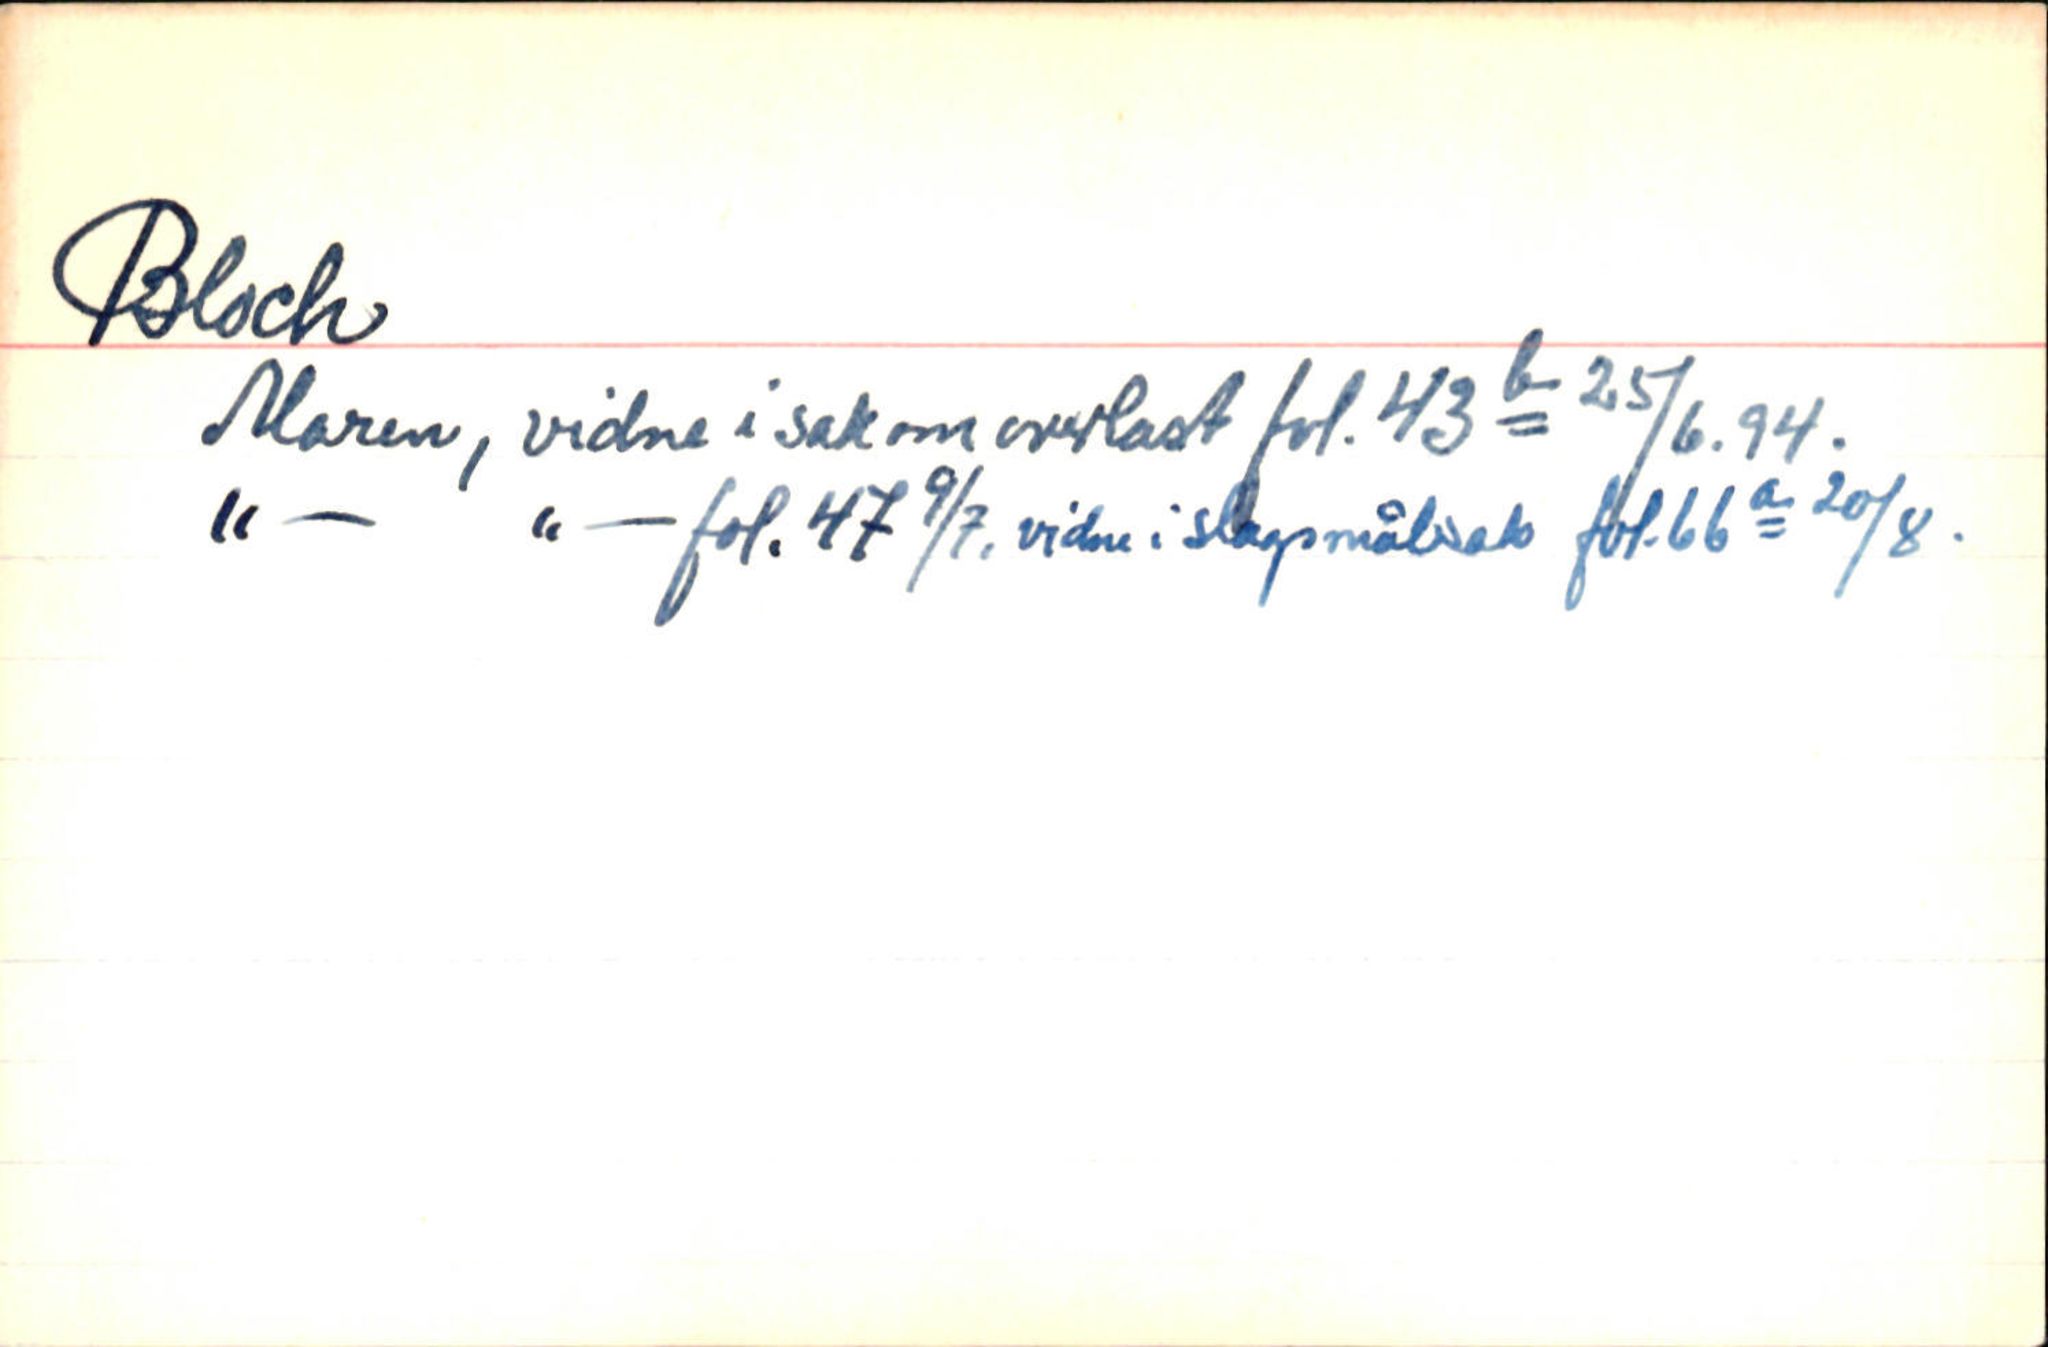 Bloch
Maren, vidne i sak om overlast fol. 43 b 25/6. 94.
"— "— fol. 47 9/7. vidne i slagsmålsak fol. 66 a 20/8.